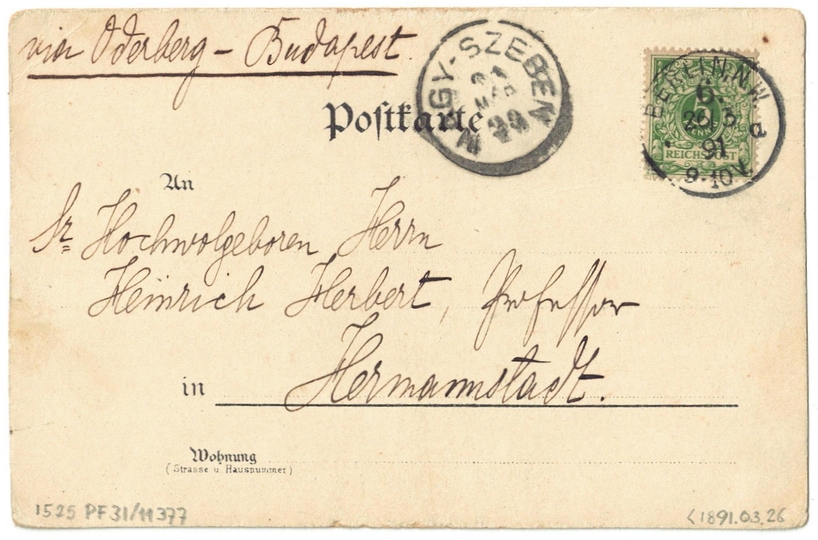 via Oderberg – Budapest.
NAGY-SZEBEN
Postkarte
BERLIN.N.W.
6.
5
91
9-10V
a
REICHSPOST
An
Sr Hochwolgeboren Herrn
Heinrich Herbert, Professor
in Hermannstadt.
Wohnung
(Strasse u. Hausnummer)
1525 PF31/11377
<1891.03.26